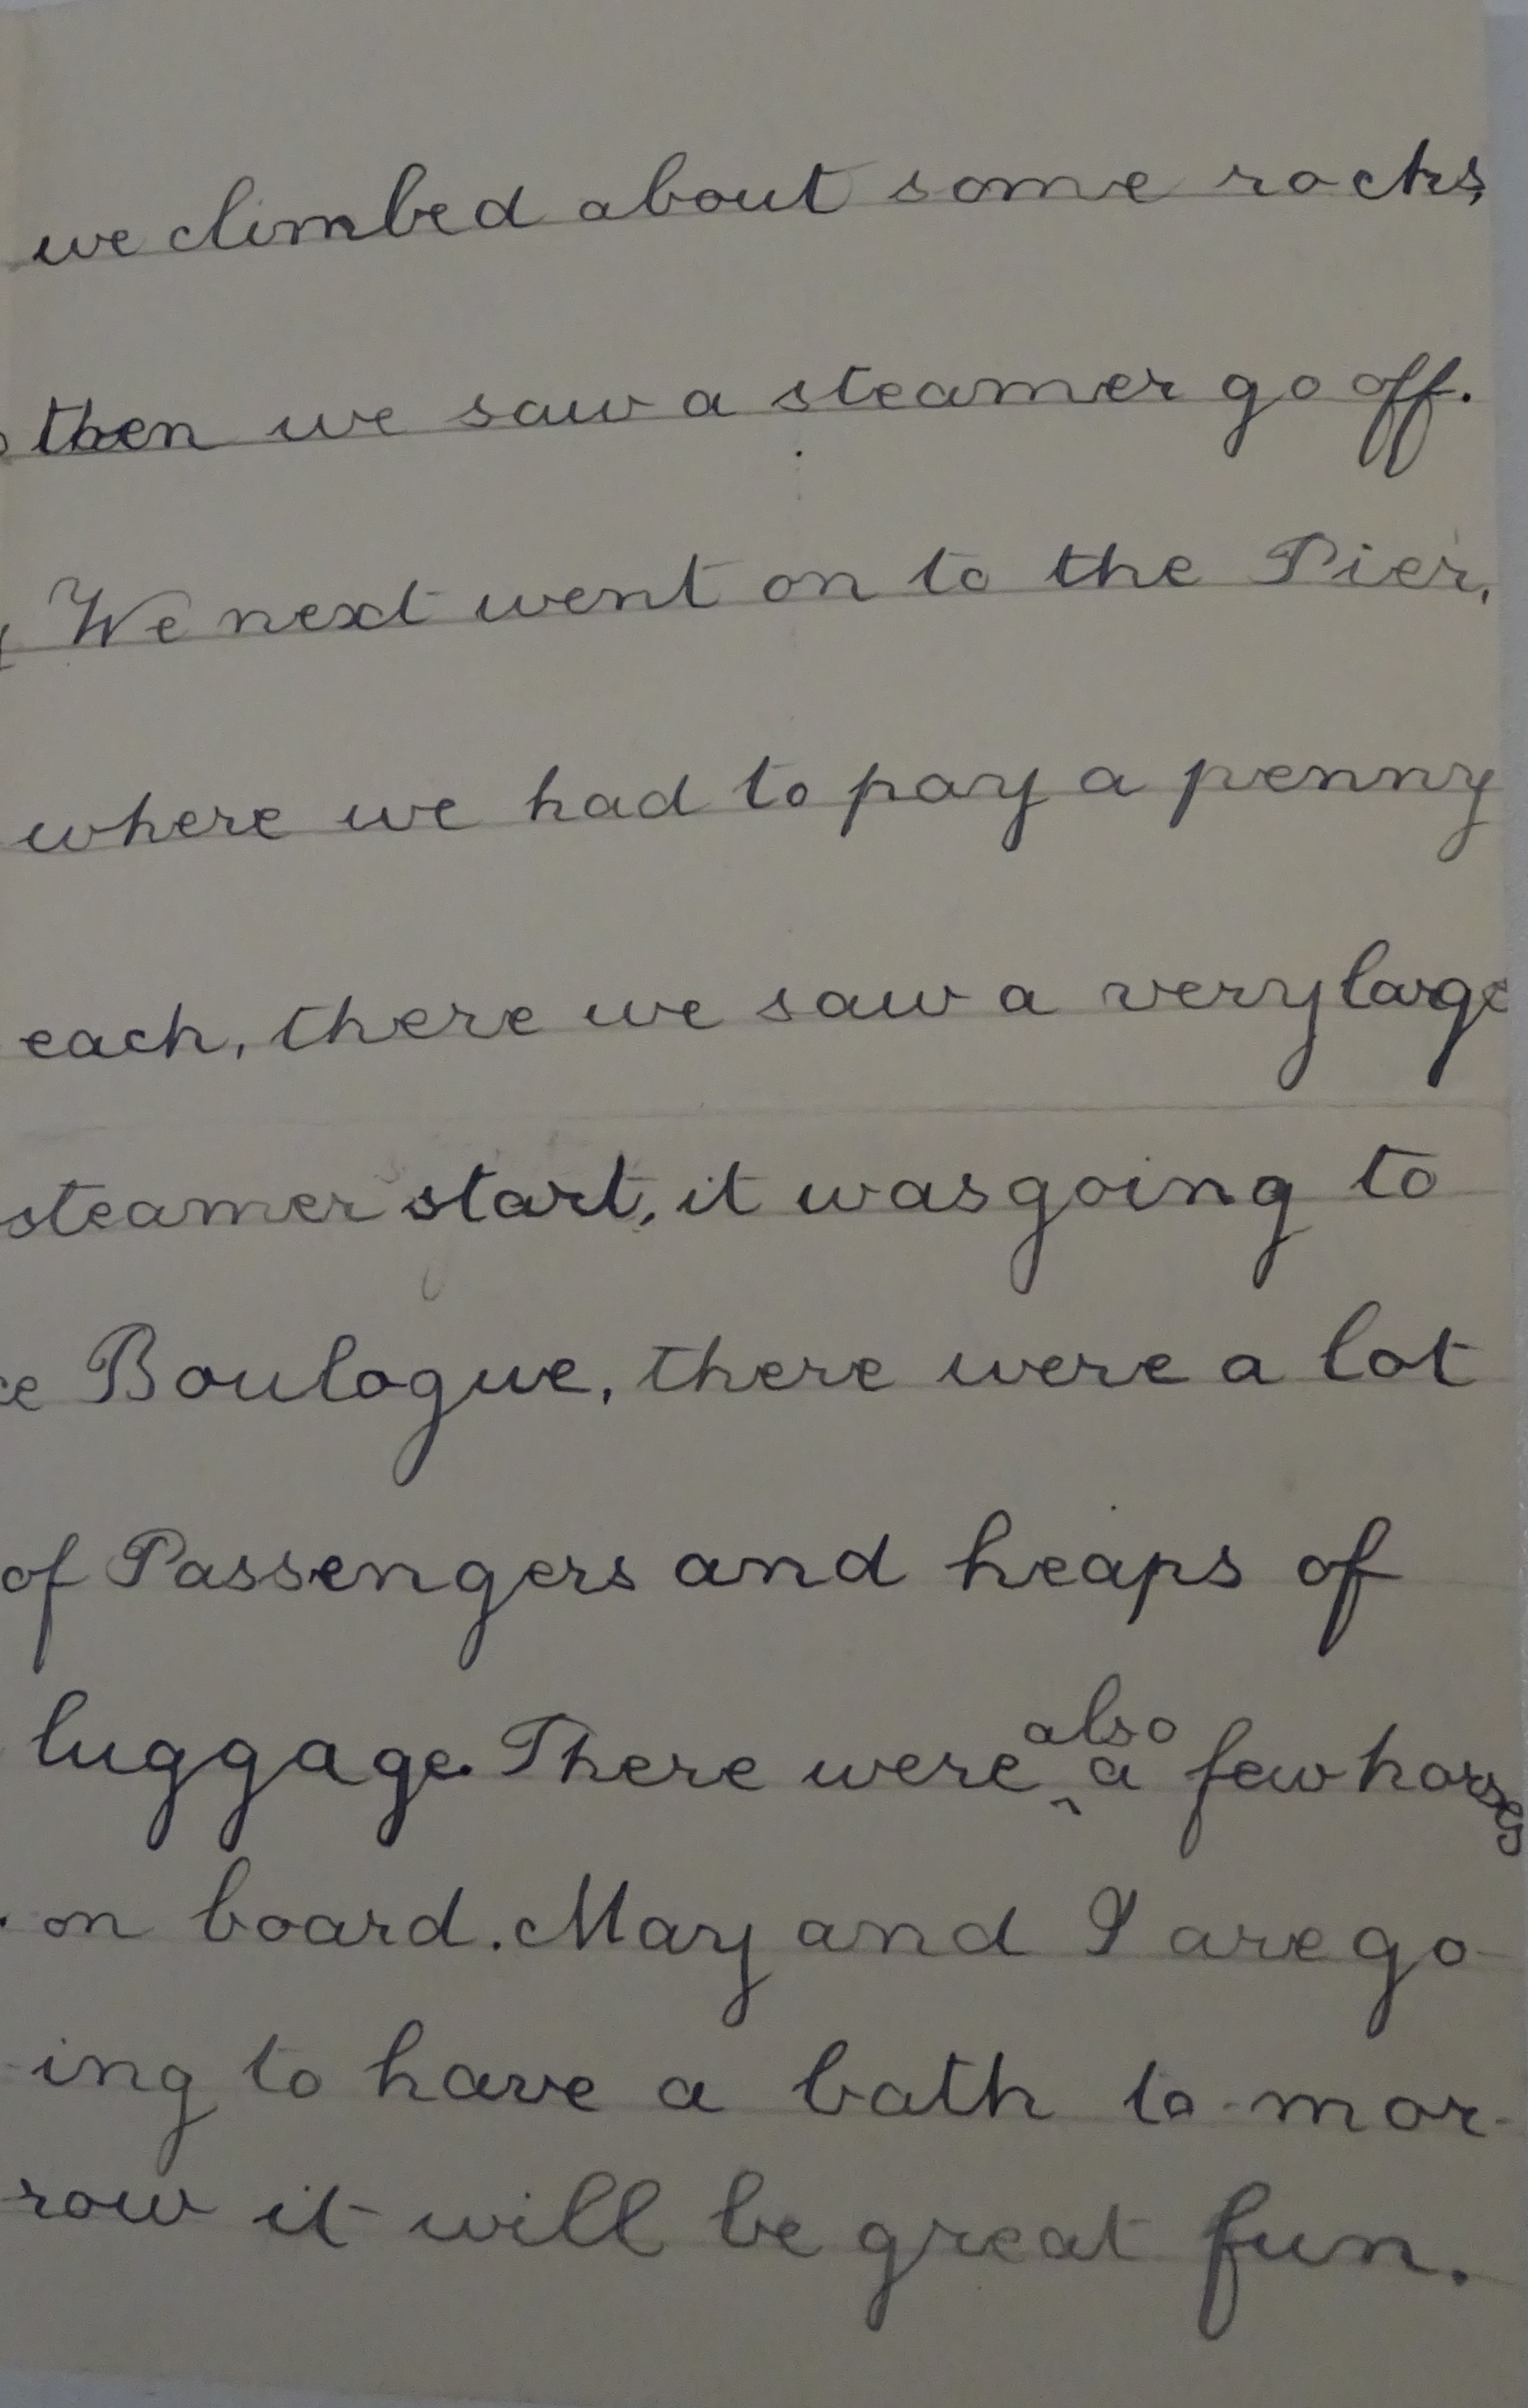 we climbed about some rocks,
then we saw a steamer go off.
We next went on to the Pier,
where we had to pay a penny
each, there we saw a very large
steamer start, it was going to
Boulogue, there were a lot
of Passengers and heaps of
luggage. There were ^also a few horses
on board. May and I are go-
ing to have a bath to-mor-
row it will be great fun.